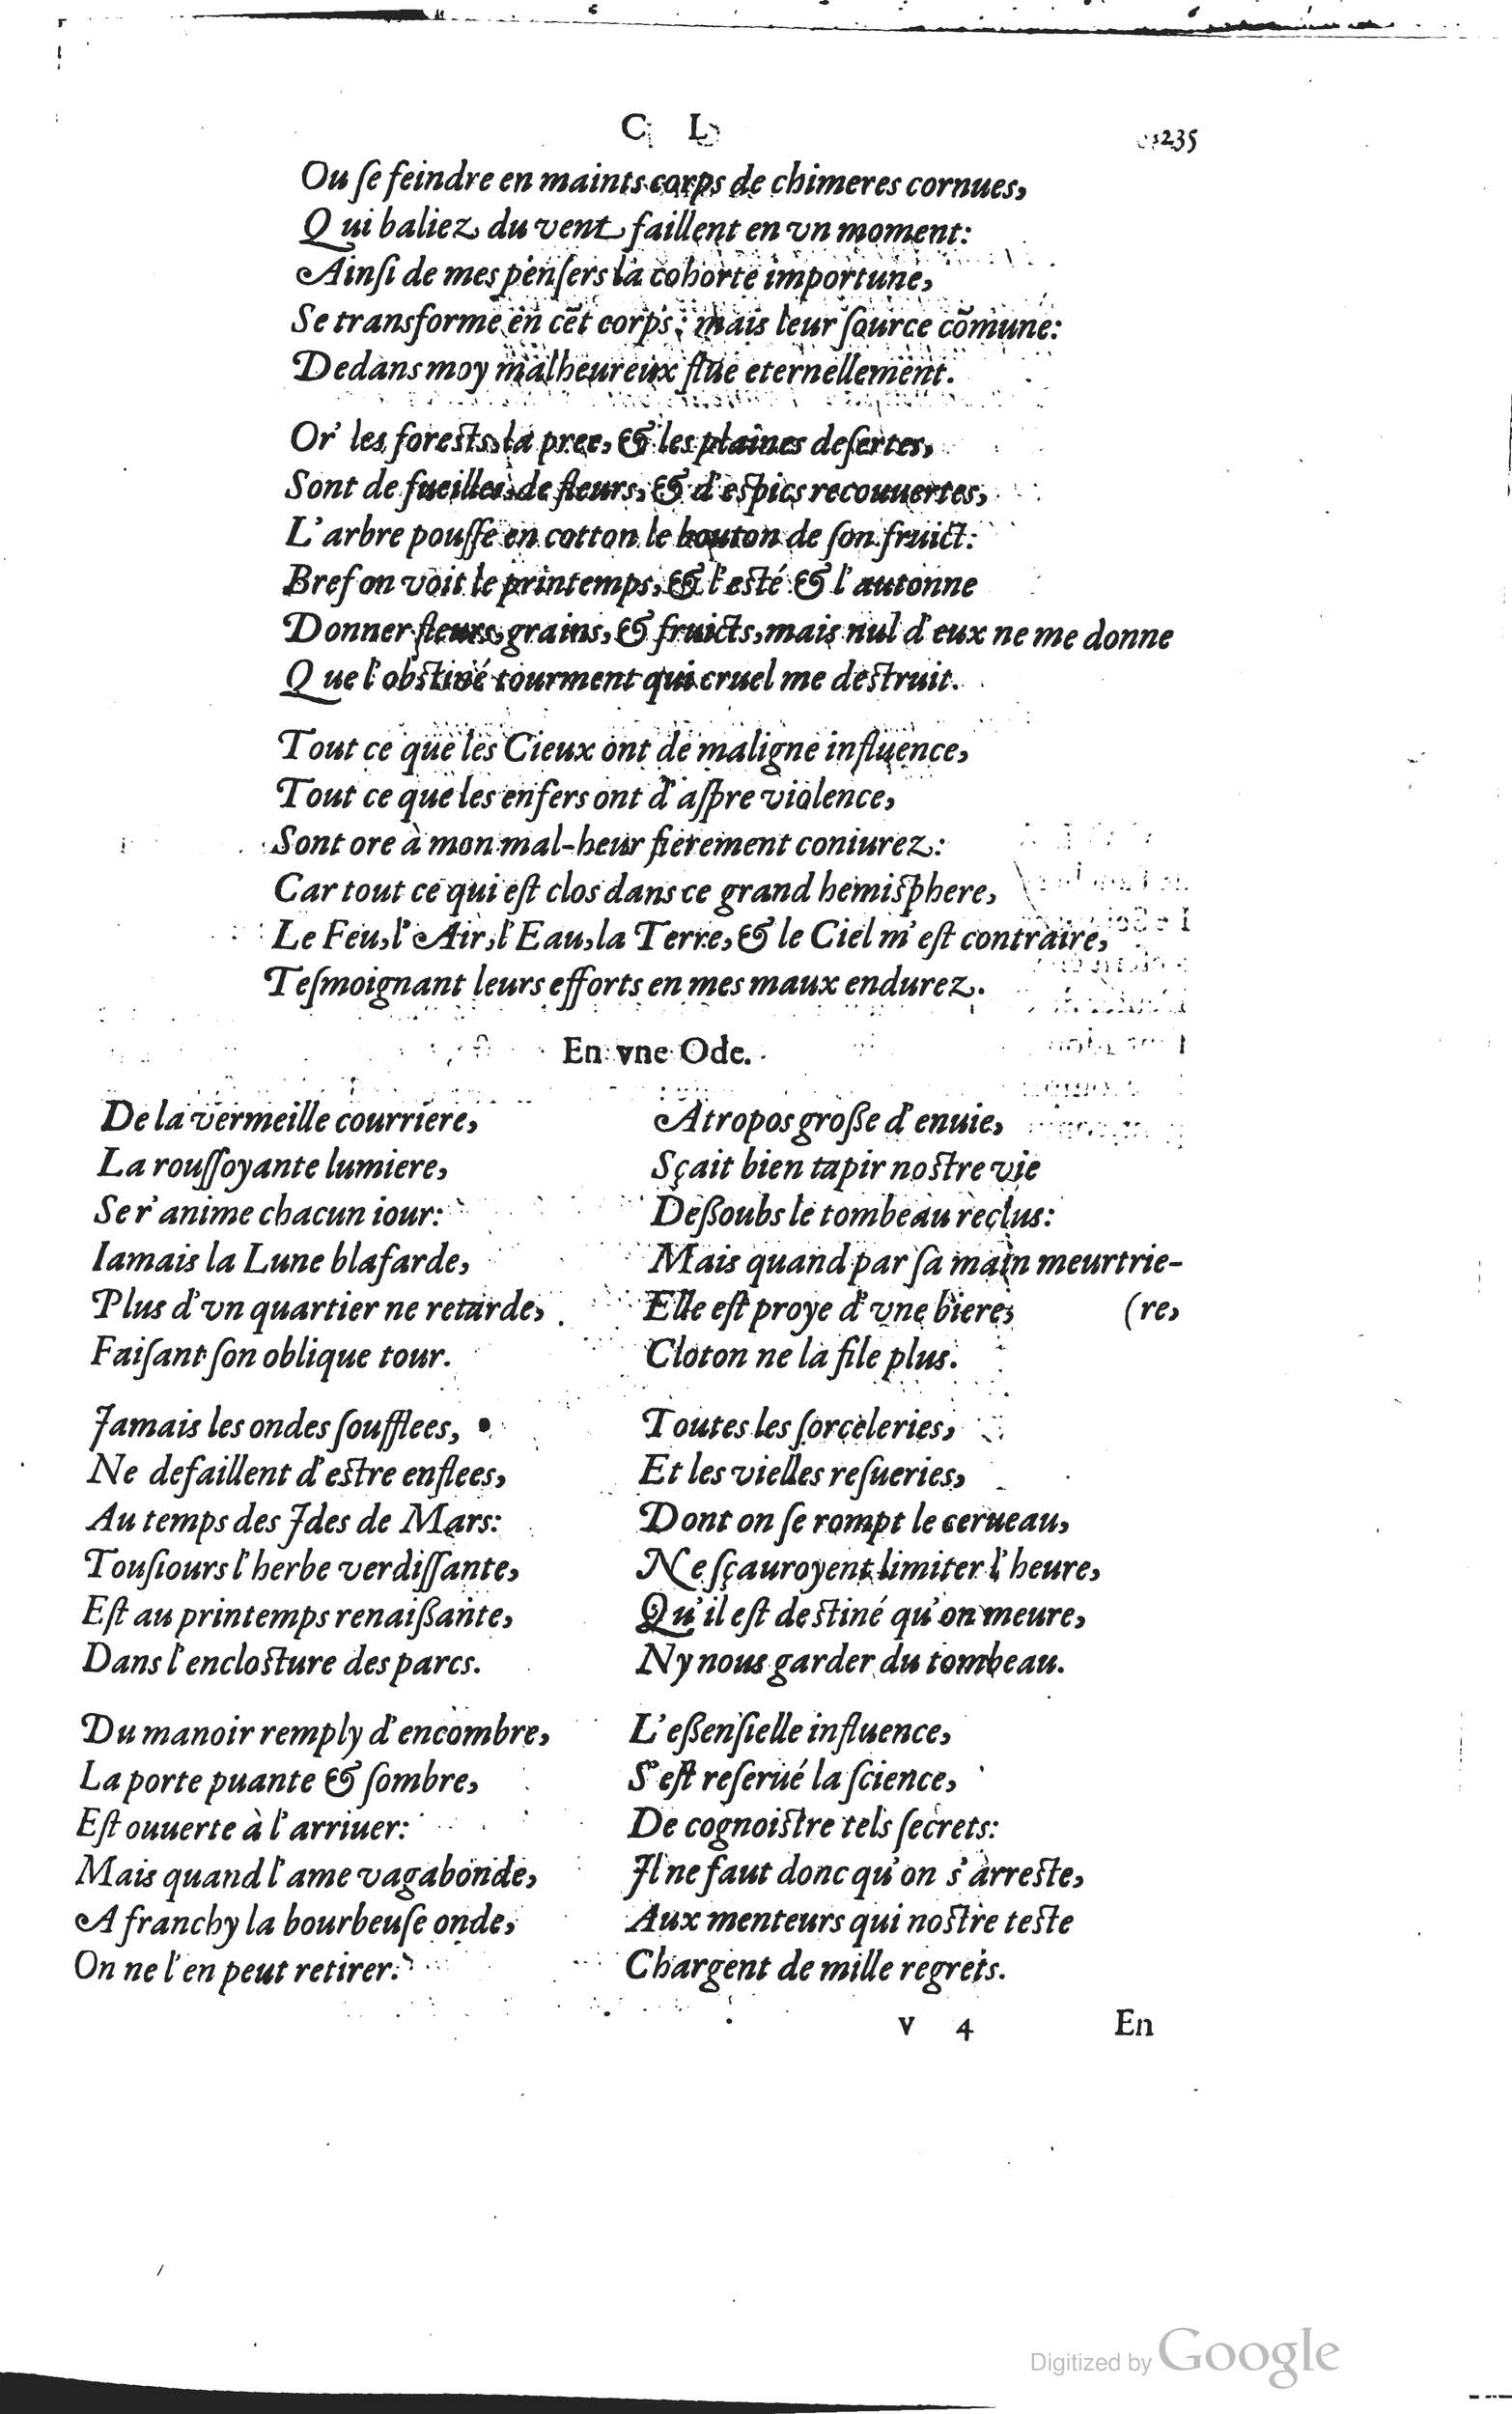 C L 235
Ou ſe feindre en maints corps de chimeres cornues,
Qui baliez du vent faillent en vn moment:
Ainſi de mes penſers la cohorte importune,
Se transforme en cēt corps; mais leur ſource cōmune:
Dedans moy malheureux flue eternellement.
Or' les forests, la pree, & les plaines deſertes,
Sont de fueilles, de fleurs, & d'espics recouuertes,
L'arbre pouſſe en cotton le bouton de ſon fruict:
Bref on voit le printemps, & l'esté & l'autonne
Donner fleurs, grains, & fruicts, mais nul d'eux ne me donne
Que l'obstiné tourment qui cruel me destruit.
Tout ce que les Cieux ont de maligne influence,
Tout ce que les enfers ont d'aſpre violence,
Sont ore à mon mal-heur fierement coniurez:
Car tout ce qui eſt clos dans ce grand hemisphere,
Le Feu, l'Air, l'Eau, la Terre, & le Ciel m'eſt contraire,
Teſmoignant leurs efforts en mes maux endurez.
En vne Ode.
De la vermeille courriere,
La rouſſoyante lumiere,
Se r'anime chacun iour:
Iamais la Lune blafarde,
Plus d'vn quartier ne retarde,
Faiſant ſon oblique tour.
Jamais les ondes ſoufflees,
Ne defaillent d'estre enflees,
Au temps des Jdes de Mars:
Touſiours l'herbe verdiſſante,
Eſt au printemps renaißante,
Dans l'encloſture des parcs.
Du manoir remply d'encombre,
La porte puante & ſombre,
Eſt ouuerte à l'arriuer:
Mais quand l'ame vagabonde,
A franchy la bourbeuſe onde,
On ne l'en peut retirer.
Atropos große d'enuie,
Sçait bien tapir noſtre vie
Deßoubs le tombeau reclus:
Mais quand par ſa main meurtrie-
Elle eſt proye d'vne biere, (re,
Cloton ne la file plus.
Toutes les ſorceleries,
Et les vielles reſueries,
Dont on ſe rompt le cerueau,
Ne ſçauroyent limiter l'heure,
Qu'il eſt deſtiné qu'on meure,
Ny nous garder du tombeau.
L'eßenſielle influence,
S'eſt reſerué la ſcience,
De cognoiſtre tels ſecrets:
Jl ne faut donc qu'on s'arreſte,
Aux menteurs qui noſtre teſte
Chargent de mille regrets.
v 4 En
Digitized by Google